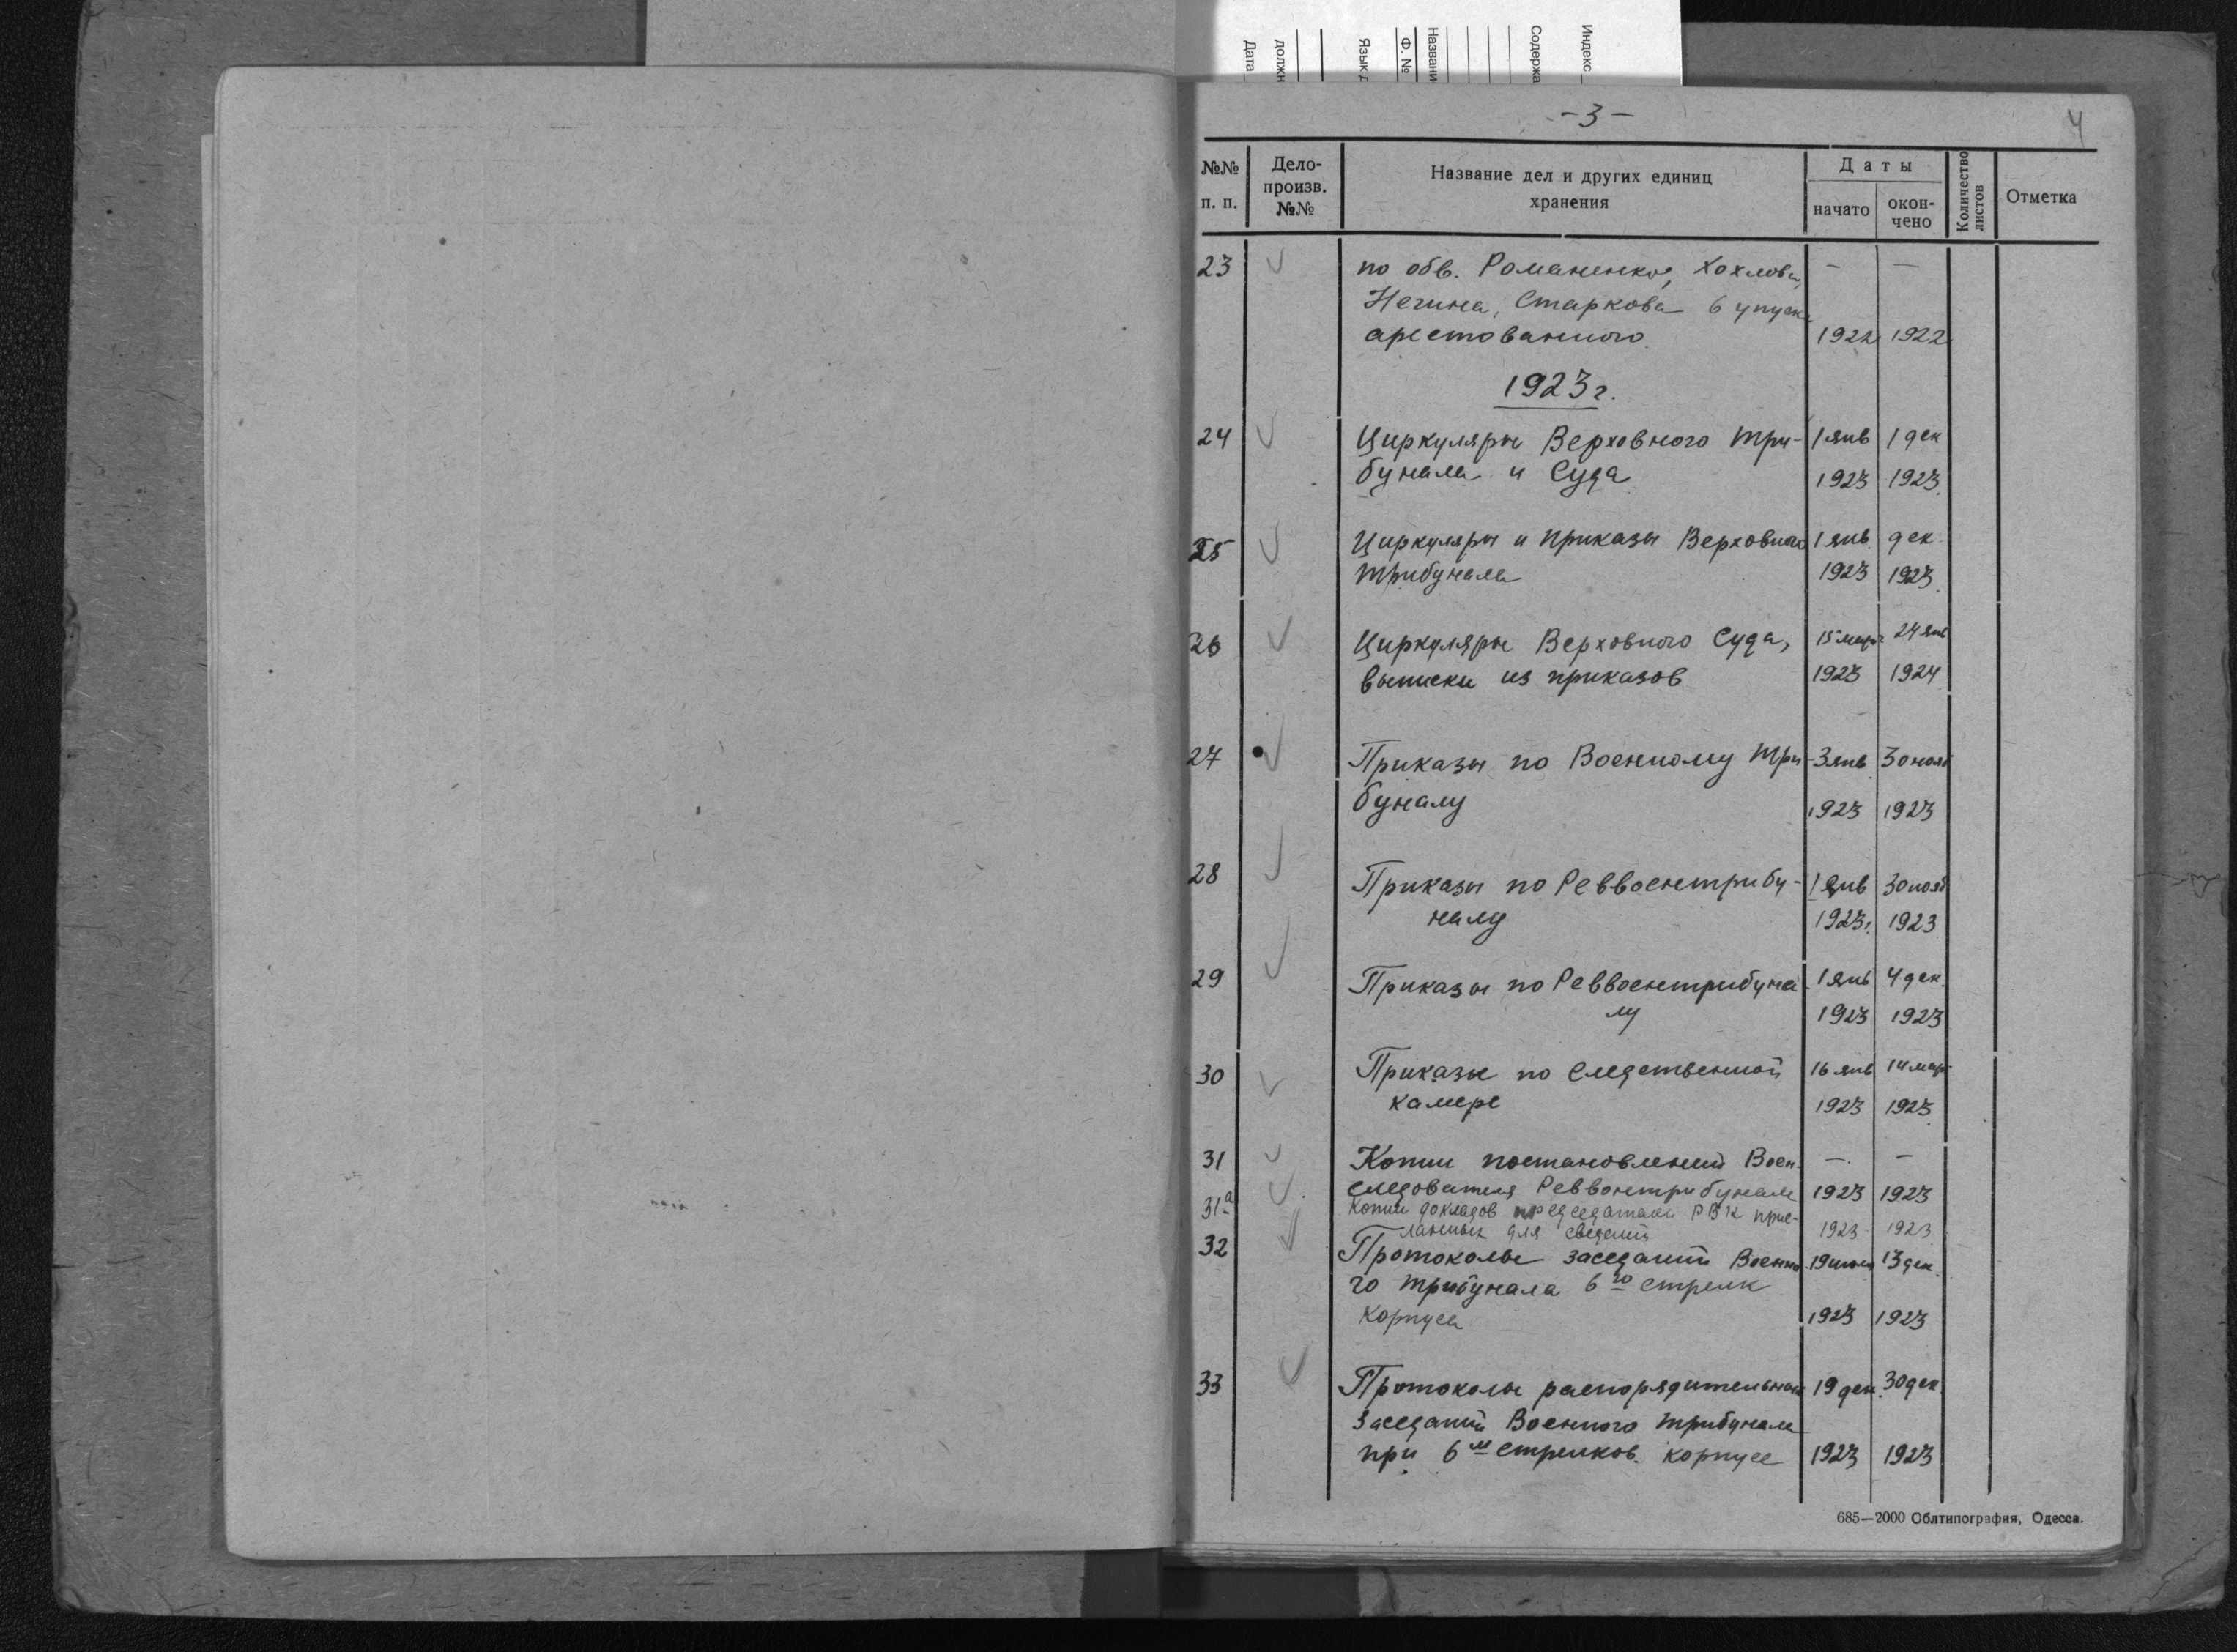 Индекс
Содержа
Названи
Ф. №
Язык д
должн
Дата
- 3 -
4
№№ п. п.
Дело-произв. №№
Название дел и других единиц хранения
Даты
начато
окон-чено
Количество листов
Отметка
23 по обв. Романенко, Хохлова, — —
Негина, Старкова в упуске
арестованного 1922 1922
1923 г.
24 Циркуляры Верховного Три- 1 янв 1 дек
бунала и Суда 1923 1923
25 Циркуляры и приказы Верховного 1 янв. дек.
Трибунала 1923 1923
26 Циркуляры Верховного Суда, 15 март 24 янв
выписки из приказов 1923 1924
27 Приказы по Военному Три- 3 янв 30 нояб
буналу 1923 1923
28 Приказы по Реввоентрибу- 1 янв 30 нояб
налу 1923 г. 1923
29 Приказы по Реввоентрибуна- 1 янв 4 дек.
лу 1923 1923
30 Приказы по следственной 16 янв 14 мар
камере 1923 1923
31 Копии постановлений Воен. — —
следователя Реввоентрибунала 1923 1923
31а Копии докладов председателя РВК прис-
ланных для сведений 1923 1923
32 Протоколы заседаний Военно- 13 дек.
го трибунала 6го стрелк
корпуса 1923 1923
33 Протоколы распорядительных 19 дек. 30 дек.
заседаний Военного трибунала
при 6м стрелков. корпусе 1923 1923
685—2000 Облтипография, Одесса.